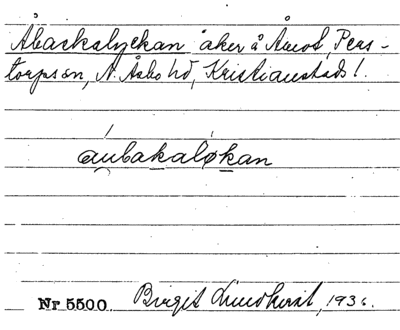 Åbackalyckan åker å Åmot, Pers-
torps sn, N. Åsbo hd, Kristianstads l.
áu̯bakaløkan
Nr 5500 Birgit Lindkvist, 1936.